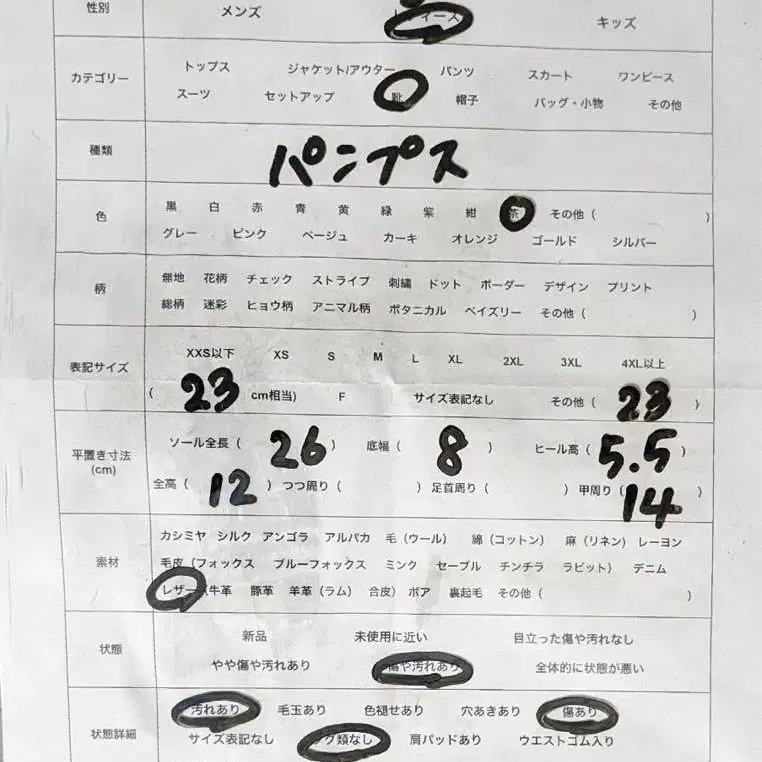 性別 メンズ レディース キッズ
カテゴリー トップス ジャケット/アウター パンツ スカート ワンピース
スーツ セットアップ 靴 帽子 バッグ・小物 その他
種類 パンプス
色 黒 白 赤 青 黄 緑 紫 紺 茶 その他 ( )
グレー ピンク ベージュ カーキ オレンジ ゴールド シルバー
柄 無地 花柄 チェック ストライプ 刺繍 ドット ボーダー デザイン プリント
総柄 迷彩 ヒョウ柄 アニマル柄 ボタニカル ペイズリー その他 ( )
表記サイズ XXS以下 XS S M L XL 2XL 3XL 4XL以上
( 23 cm相当) F サイズ表記なし その他 ( 23 )
平置き寸法 (cm) ソール全長 ( 26 ) 底幅 ( 8 ) ヒール高 ( 5.5 )
全高 ( 12 ) つつ周り ( ) 足首周り ( ) 甲周り ( 14 )
素材 カシミヤ シルク アンゴラ アルパカ 毛 (ウール) 綿 (コットン) 麻 (リネン) レーヨン
毛皮 (フォックス ブルーフォックス ミンク セーブル チンチラ ラビット) デニム
レザー (牛革 豚革 羊革 (ラム) 合皮) ボア 裏起毛 その他 ( )
状態 新品 未使用に近い 目立った傷や汚れなし
やや傷や汚れあり 傷や汚れあり 全体的に状態が悪い
状態詳細 汚れあり 毛玉あり 色褪せあり 穴あきあり 傷あり
サイズ表記なし タグ類なし 肩パッドあり ウエストゴム入り